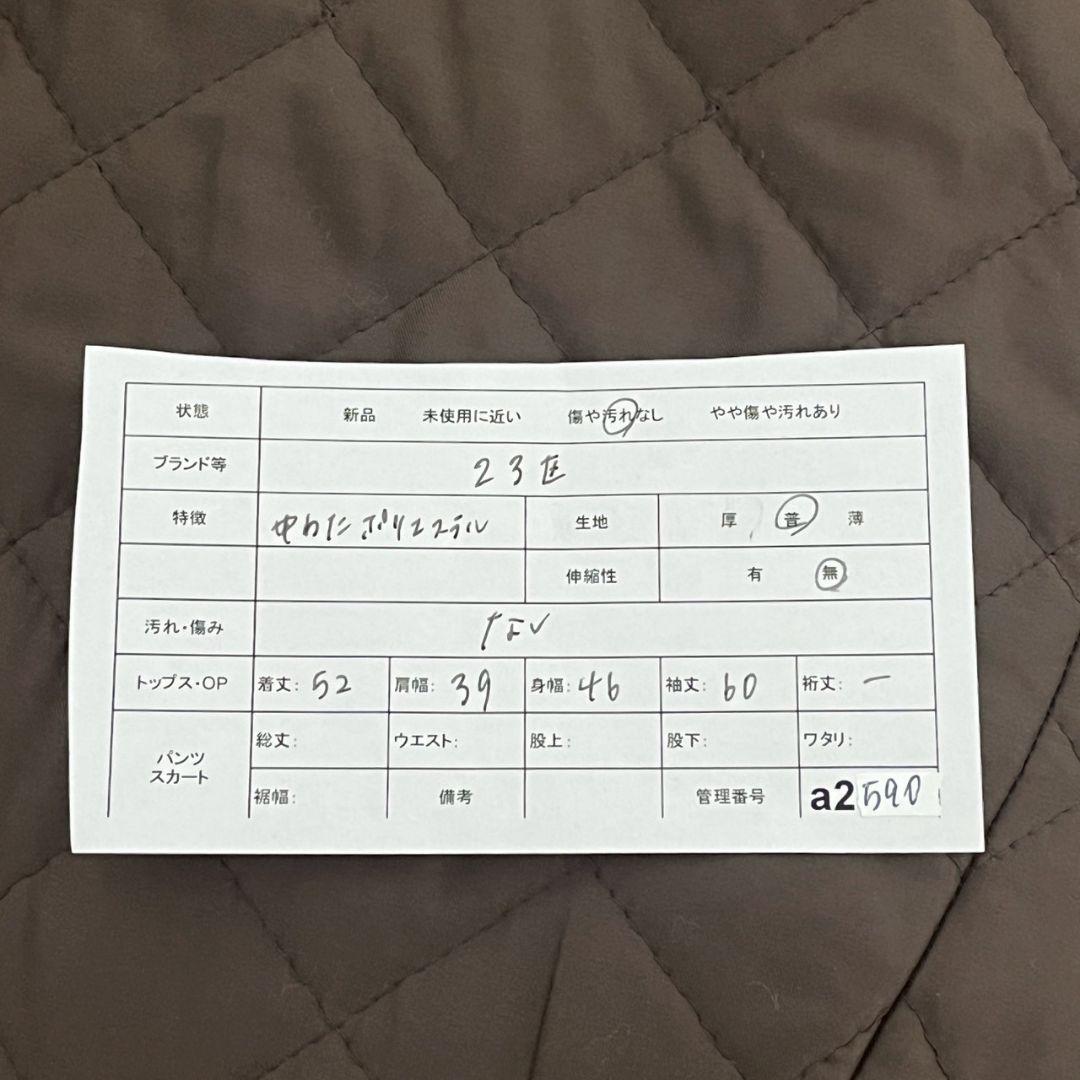 状態 新品 未使用に近い 傷や汚れなし やや傷や汚れあり
ブランド等 23区
特徴 中わたポリエステル 生地 厚 普 薄
伸縮性 有 無
汚れ・傷み なし
トップス・OP 着丈: 52 肩幅: 39 身幅: 46 袖丈: 60 裄丈: ー
パンツ スカート 総丈: ウエスト: 股上: 股下: ワタリ:
裾幅: 備考 管理番号 a2 590